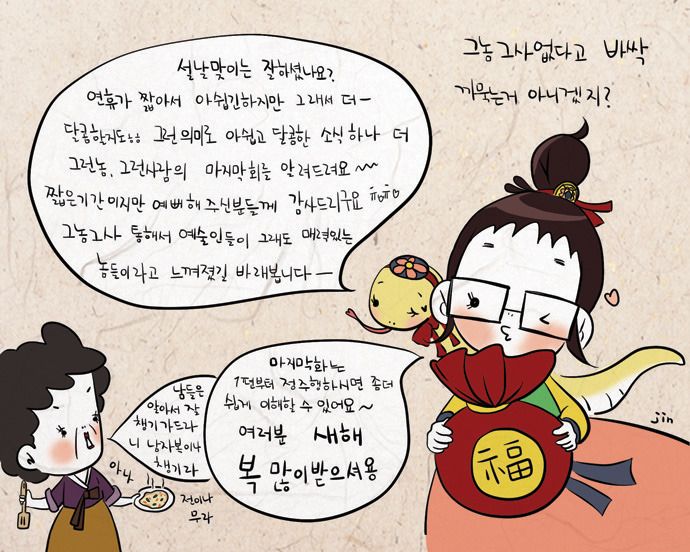 그놈 그사 없다고 바싹
까묵는거 아니겠지?
설날맞이는 잘하셨나요?
연휴가 짧아서 아쉽긴하지만 그래서 더ㅡ
달콤할지도ㅎㅎ 그런 의미로 아쉽고 달콤한 소식하나 더
그런놈, 그런사람의 마지막회를 알려드려요~~
짧은기간이지만 예뻐해 주신분들께 감사드리구요 ㅠㅂㅠ♡
그놈그사 통해서 예술인들이 그래도 매력있는
놈들이라고 느껴졌길 바래봅니다ㅡ
마지막화는
1편부터 정주행하시면 좀더
쉽게 이해할 수 있어요~
여러분 새해
복 많이받으셔용
남들은
알아서 잘
챙기가드라
니 남자복이나
챙기라
아나
전이나
무라
福
jin